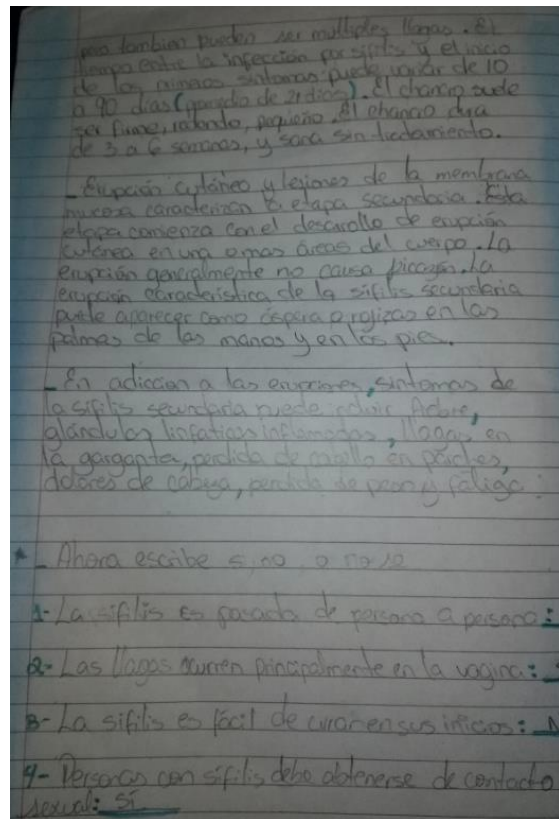 pero tambien pueden ser multiples llagas. El
tiempo entre la infección por sífilis y el inicio
de los primeros sintomas puede variar de 10
a 90 días (promedio de 21 días). El chancro suele
ser firme, redondo, pequeño. El chancro dura
de 3 a 6 semanas, y sana sin
- Erupción cutáneo y lesiones de la membrana
mucosa caracterizan la etapa secundaria. Esta
etapa comienza con el desarrollo de erupción
cutánea en una o mas áreas del cuerpo. La
erupción generalmente no causa picazón. La
erupción característica de la sífilis secundaria
puede aparecer como áspera o rojizas en las
palmas de las manos y en los pies.
- En adiccion a las erupciones, sintomas de
la sifilis secundaria puede fiebre,
glándulas linfaticas inflamadas, llagas en
la garganta, perdida de cabello en parches,
dolores de cabeza, perdida de peso y fatiga
- Ahora escribe si, no, o no
1- La sifilis es pasada de persona a persona:
2- Las llagas ocurren principalmente en la vagina:
3- La sifilis es fácil de curar en sus inicios:
4- Personas con sífilis debe abtenerse de contacto
sexual: SI